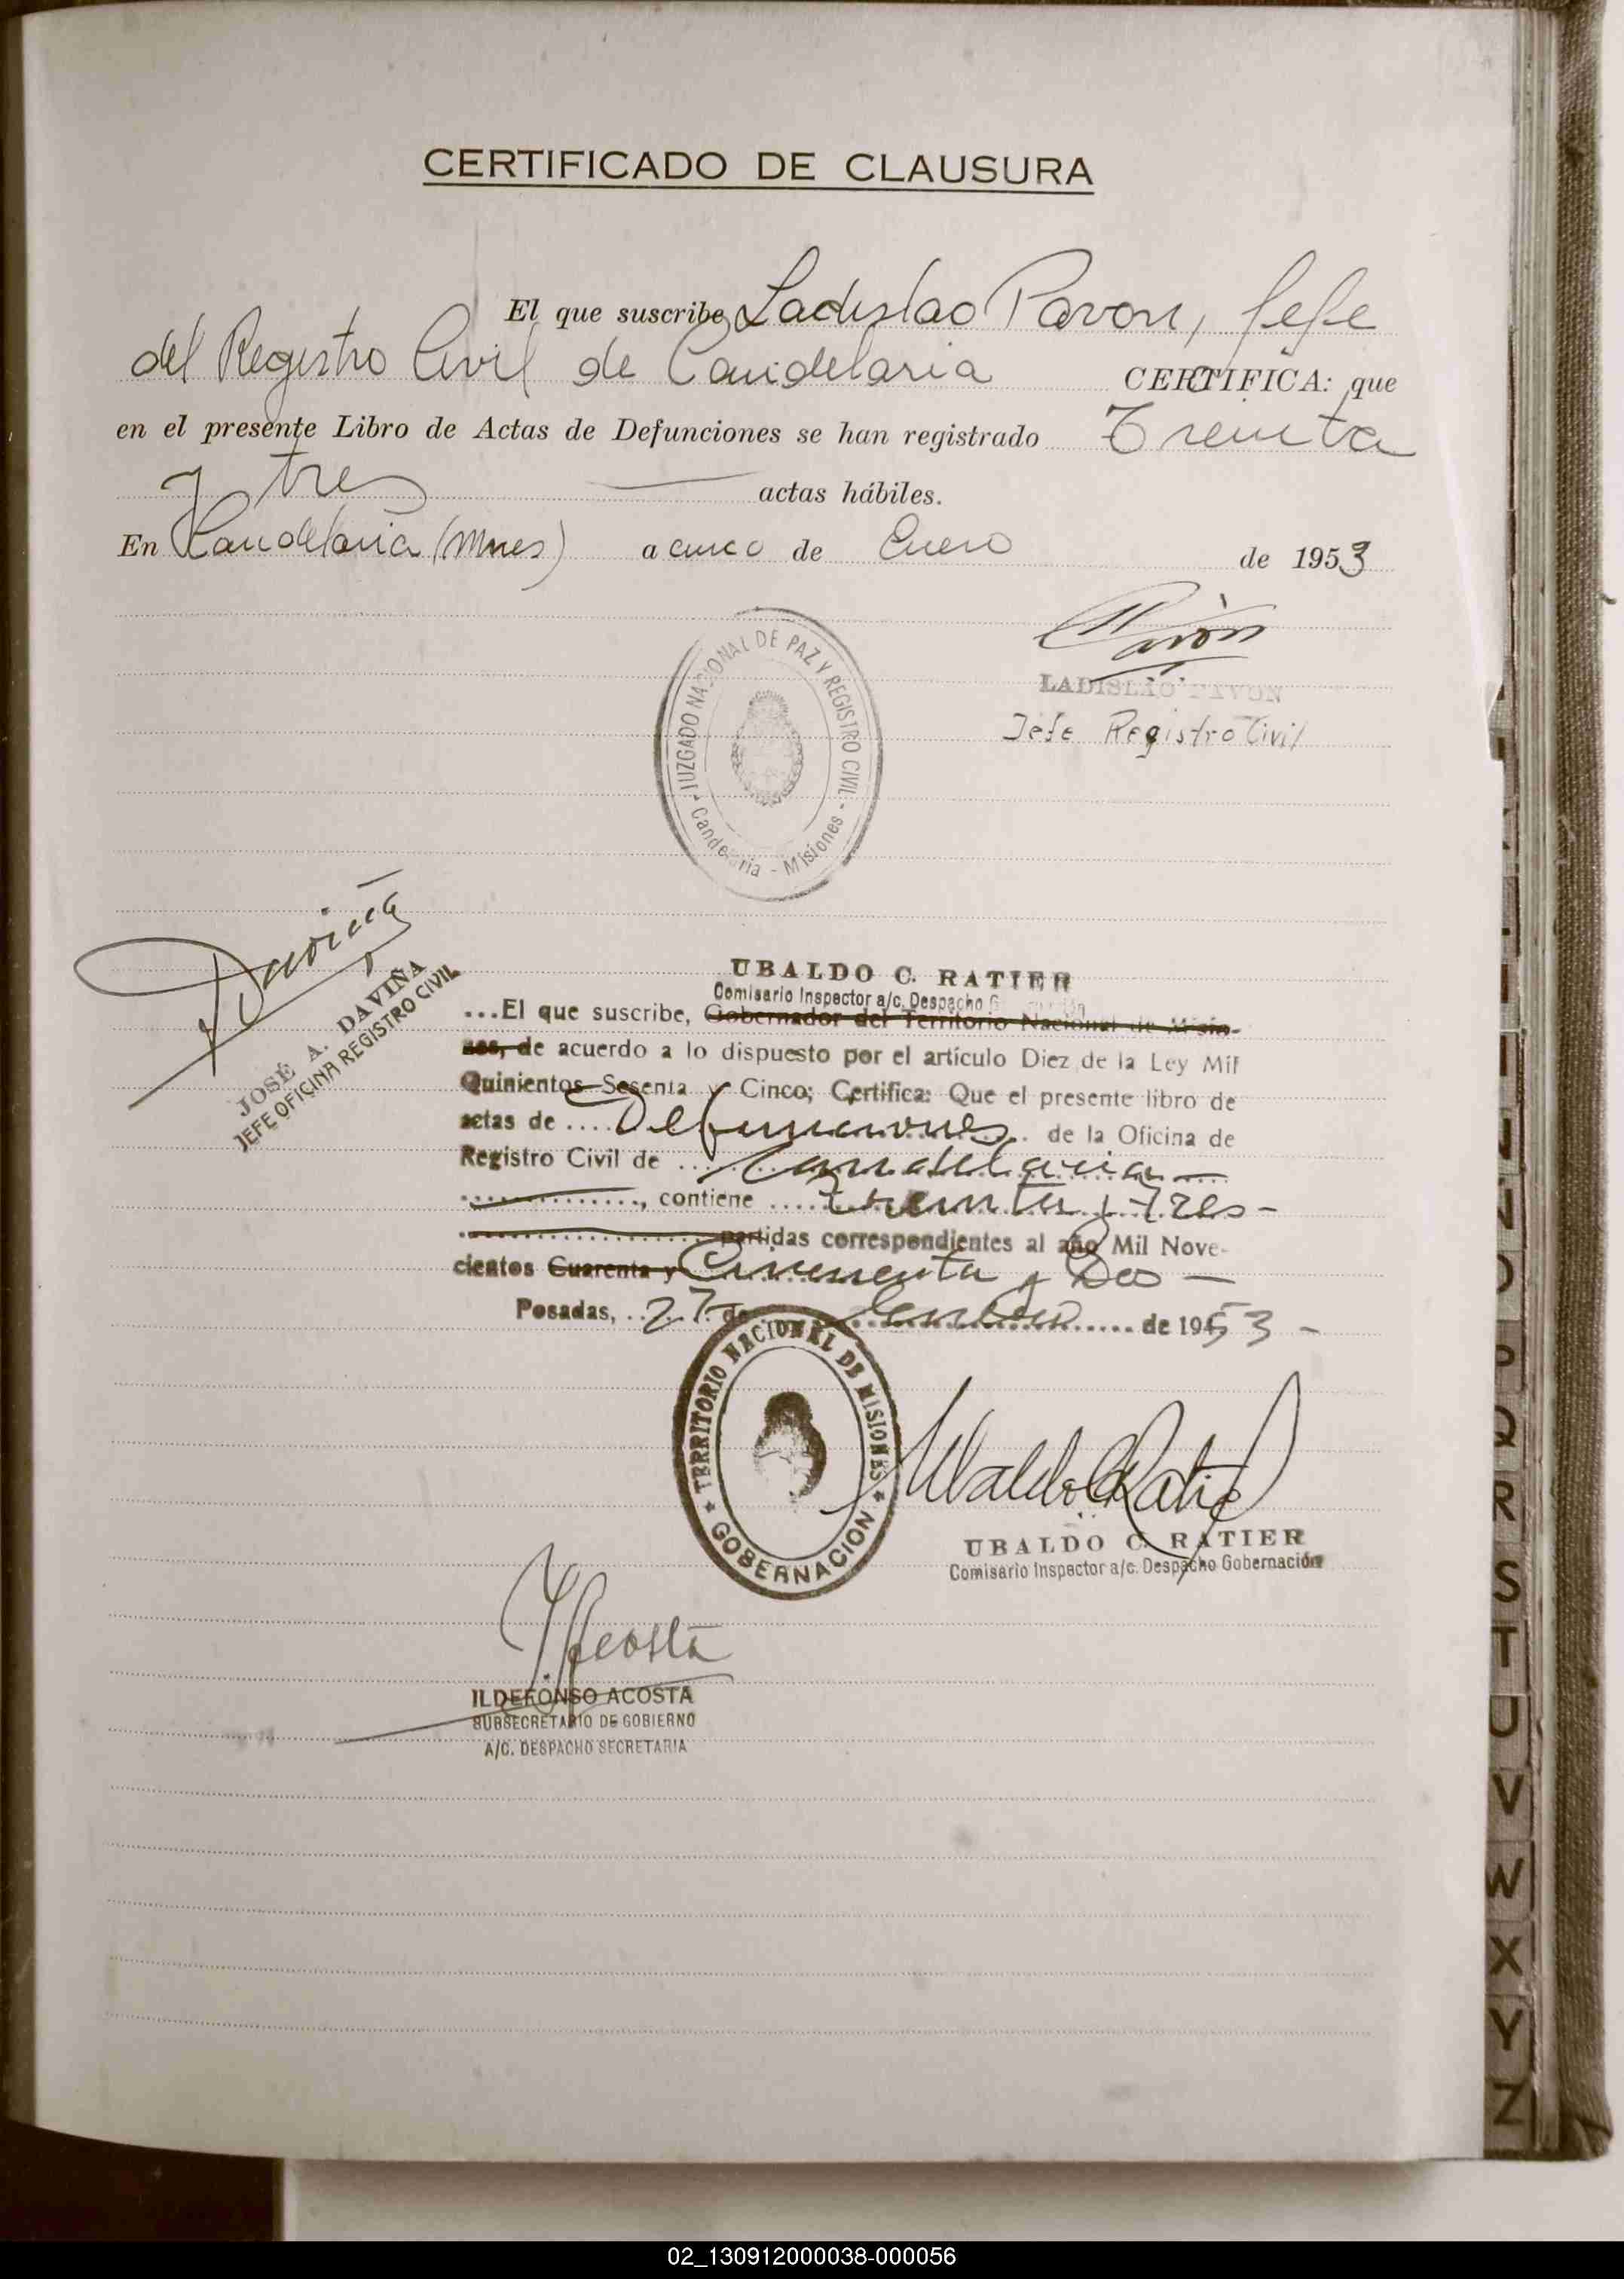 CERTIFICADO DE CLAUSURA
El que suscribe, Ladislao Pavon, Jefe
del Registro Civil de Candelaria CERTIFICA: que
en el presente Libro de Actas de Defunciones se han registrado Treinta
y tres actas hábiles.
En Candelaria (Mnes) a cinco de Enero de 1953
Pavón
LADISLAO PAVON
Jefe Registro Civil
JUZGADO NACIONAL DE PAZ Y REGISTRO CIVIL
Candelaria - Misiones -
Daviña
JOSÉ A. DAVIÑA
JEFE OFICINA REGISTRO CIVIL
UBALDO C. RATIER
Comisario Inspector a/c. Despacho
...El que suscribe, Gobernador del Territorio Nacional de Misio-
nes, de acuerdo a lo dispuesto por el artículo Diez de la Ley Mil
Quinientos Sesenta y Cinco; Certifica: Que el presente libro de
actas de .... Defunciones .. de la Oficina de
Registro Civil de ... Candelaria
, contiene .... treinta y tres -
partidas correspondientes al año Mil Nove-
cientos Cuarenta y Cincuenta y Dos -
Posadas, .. 27 de ..... de 1953 -
TERRITORIO NACIONAL DE MISIONES
GOBERNACION
Ubaldo C Ratier
UBALDO C. RATIER
Comisario Inspector a/c. Despacho Gobernación
I Acosta
ILDEFONSO ACOSTA
SUBSECRETARIO DE GOBIERNO
A/C. DESPACHO SECRETARIA
N
O
P
Q
R
S
T
U
V
W
X
Y
Z
02_130912000038-000056